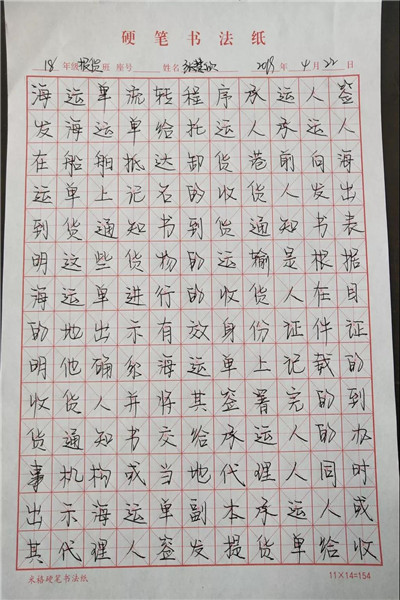 硬笔书法纸
18 年级 报货 班 座号 姓名 2018 年 4 月 22 日
海运单流转程序承运人签
发海运单给托运人承运人
在船舶抵达卸货港前向海
运单上记名的收货人发出
到货通知书到货通知书表
明这些货物的运输是根据
海运单进行的收货人在目
的地出示有效身份证件证
明他确系海运单上记载的
收货人并将其签署完的到
货通知书交给承运人的办
事机构或当地代理人同时
出示海运单副本承运人或
其代理人签发提货单给收
米禧硬笔书法纸 11×14=154